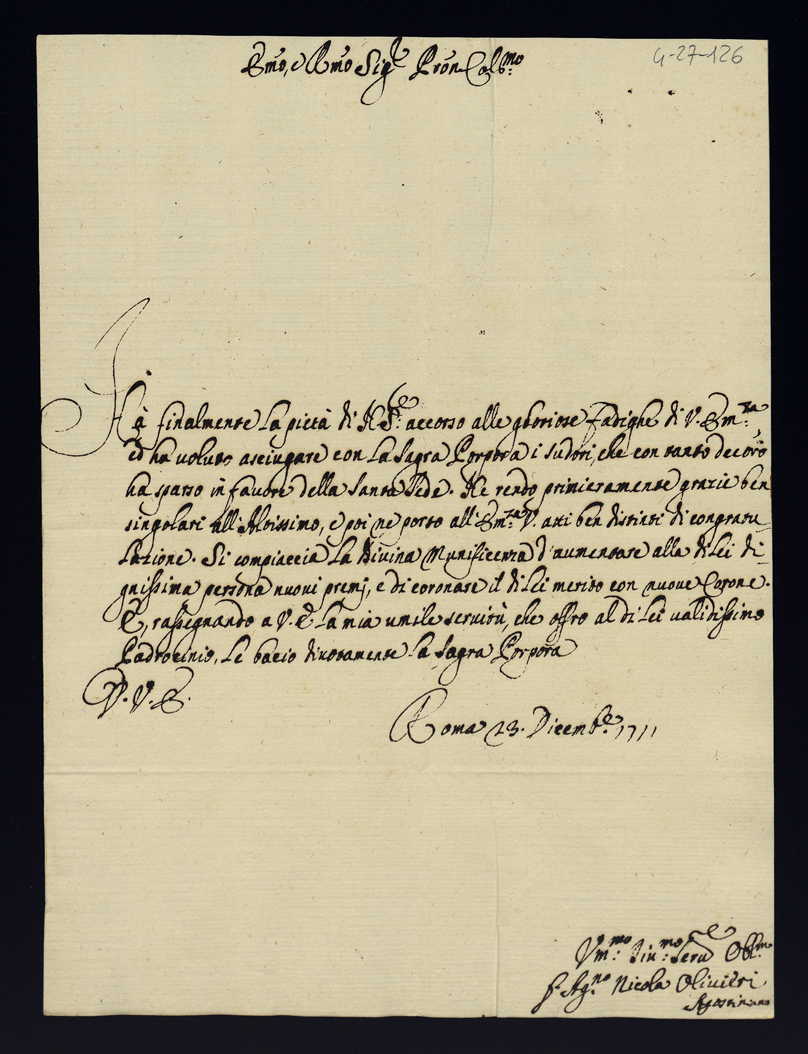 4-27-126
Emo, e Rmo Sigre Pron Colmo
Hà finalmente la pietà di N. Sre accorso alle gloriose fadighe di V. Emza,
ed ha voluto asciugare con la Sagra Porpora i sudori, che con tanto decoro
ha sparso in favore della Santa Sede. Ne rendo primieramente grazie ben
singolari all'Altissimo, e poi ne porto all'Emza V. atti ben distinti di congratu-
lazione. Si compiaccia la Divina Munificenza d'aumentare alla di Lei di-
gnissima persona nuovi premj, e di coronare il di Lei merito con nuove Corone.
E, rassegnando a V. E. la mia umile servitù, che offro al di Lei validissimo
Padrocinio, le bacio divotamente la Sagra Porpora
D. V. E.
Roma 23. Dicembe 1711
Vmmo Divmo Serve Obbmo
f. Agno Nicola Olivieri
Agostiniano